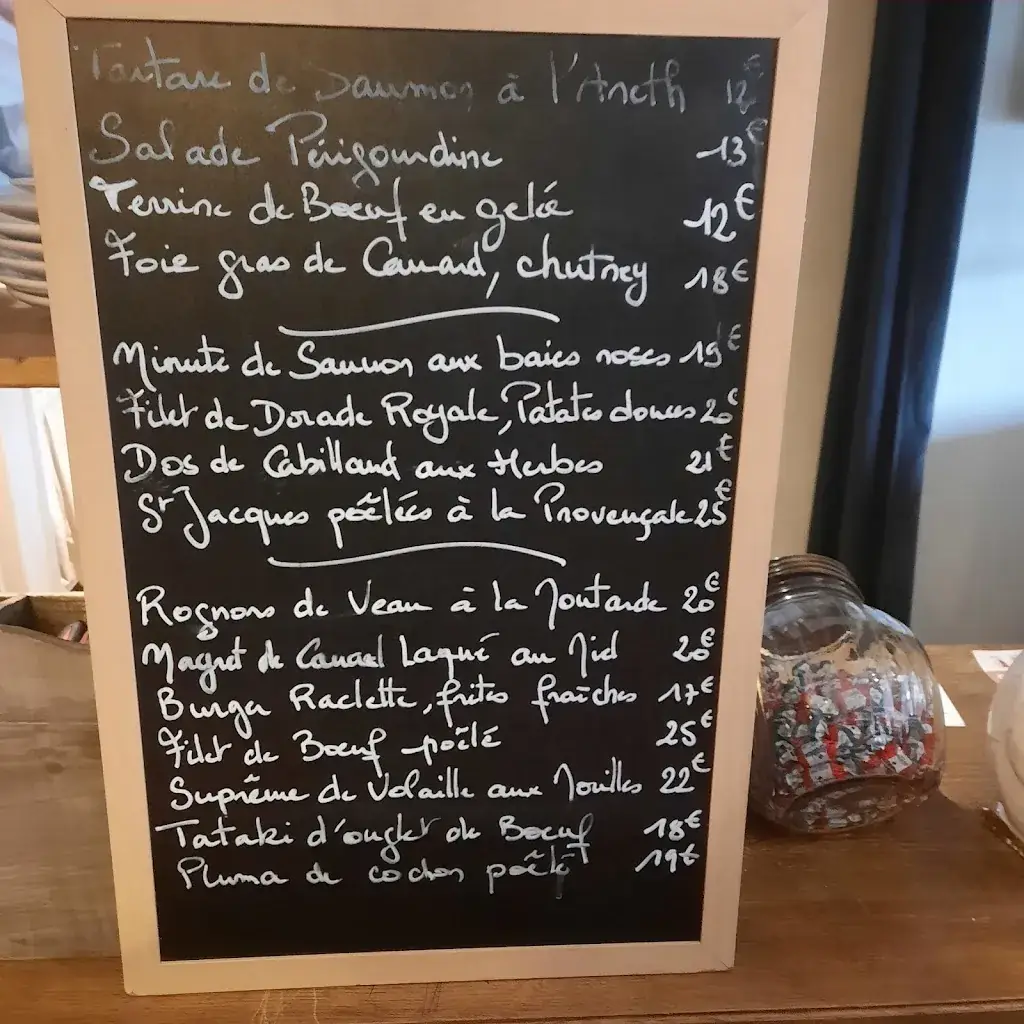 Tartare de Saumon à l'Aneth 12€
Salade Périgourdine 13€
Terrine de Boeuf en gelée 12€
Foie gras de Canard, chutney 18€
Minute de Saumon aux baies roses 19€
Filet de Dorade Royale, Patates douces 20€
Dos de Cabillaud aux Herbes 21€
St Jacques poêlées à la Provençale 25€
Rognons de Veau à la Moutarde 20€
Magret de Canard Laqué au Miel 20€
Burger Raclette, frites fraîches 17€
Filet de Boeuf poêlé 25€
Suprême de Volaille aux Morilles 22€
Tataki d'onglet de Boeuf 18€
Pluma de cochon poêlé 19€